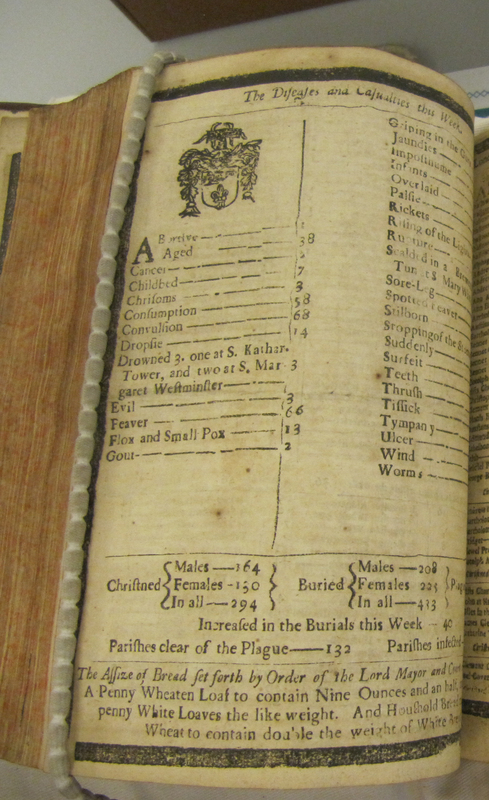 The Diseases and Casualties this Week.
ABortive
Aged — 38
Cancer
Childbed — 7
Chrisoms — 3
Consumption — 58
Convulsion — 68
Dropsie — 14
Drowned 3. one at S. Kathar.
Tower, and two at S. Mar- 3
garet Westminster
Evil — 3
Feaver — 66
Flox and Small Pox — 13
Gout — 2
Griping in the
Jaundies
Imposthume
Infants
Overlaid
Palsie
Rickets
Rising of the Lights
Rupture
Scalded in a
at S. Mary
Sore-Leg
Spotted Feaver
Stilborn
Stopping of the
Suddenly
Surfeit
Teeth
Thrush
Tissick
Tympany
Ulcer
Wind
Worms
Christned Males — 164 Females — 130 In all — 294
Buried Males — 208 Females 225 In all — 433
Increased in the Burials this Week — 40
Parishes clear of the Plague — 132 Parishes infected
The Assize of Bread set forth by Order of the Lord Mayor and
A Penny Wheaten Loaf to contain Nine Ounces and an half,
penny White Loaves the like weight. And Houshold
Wheat to contain double the weight of White